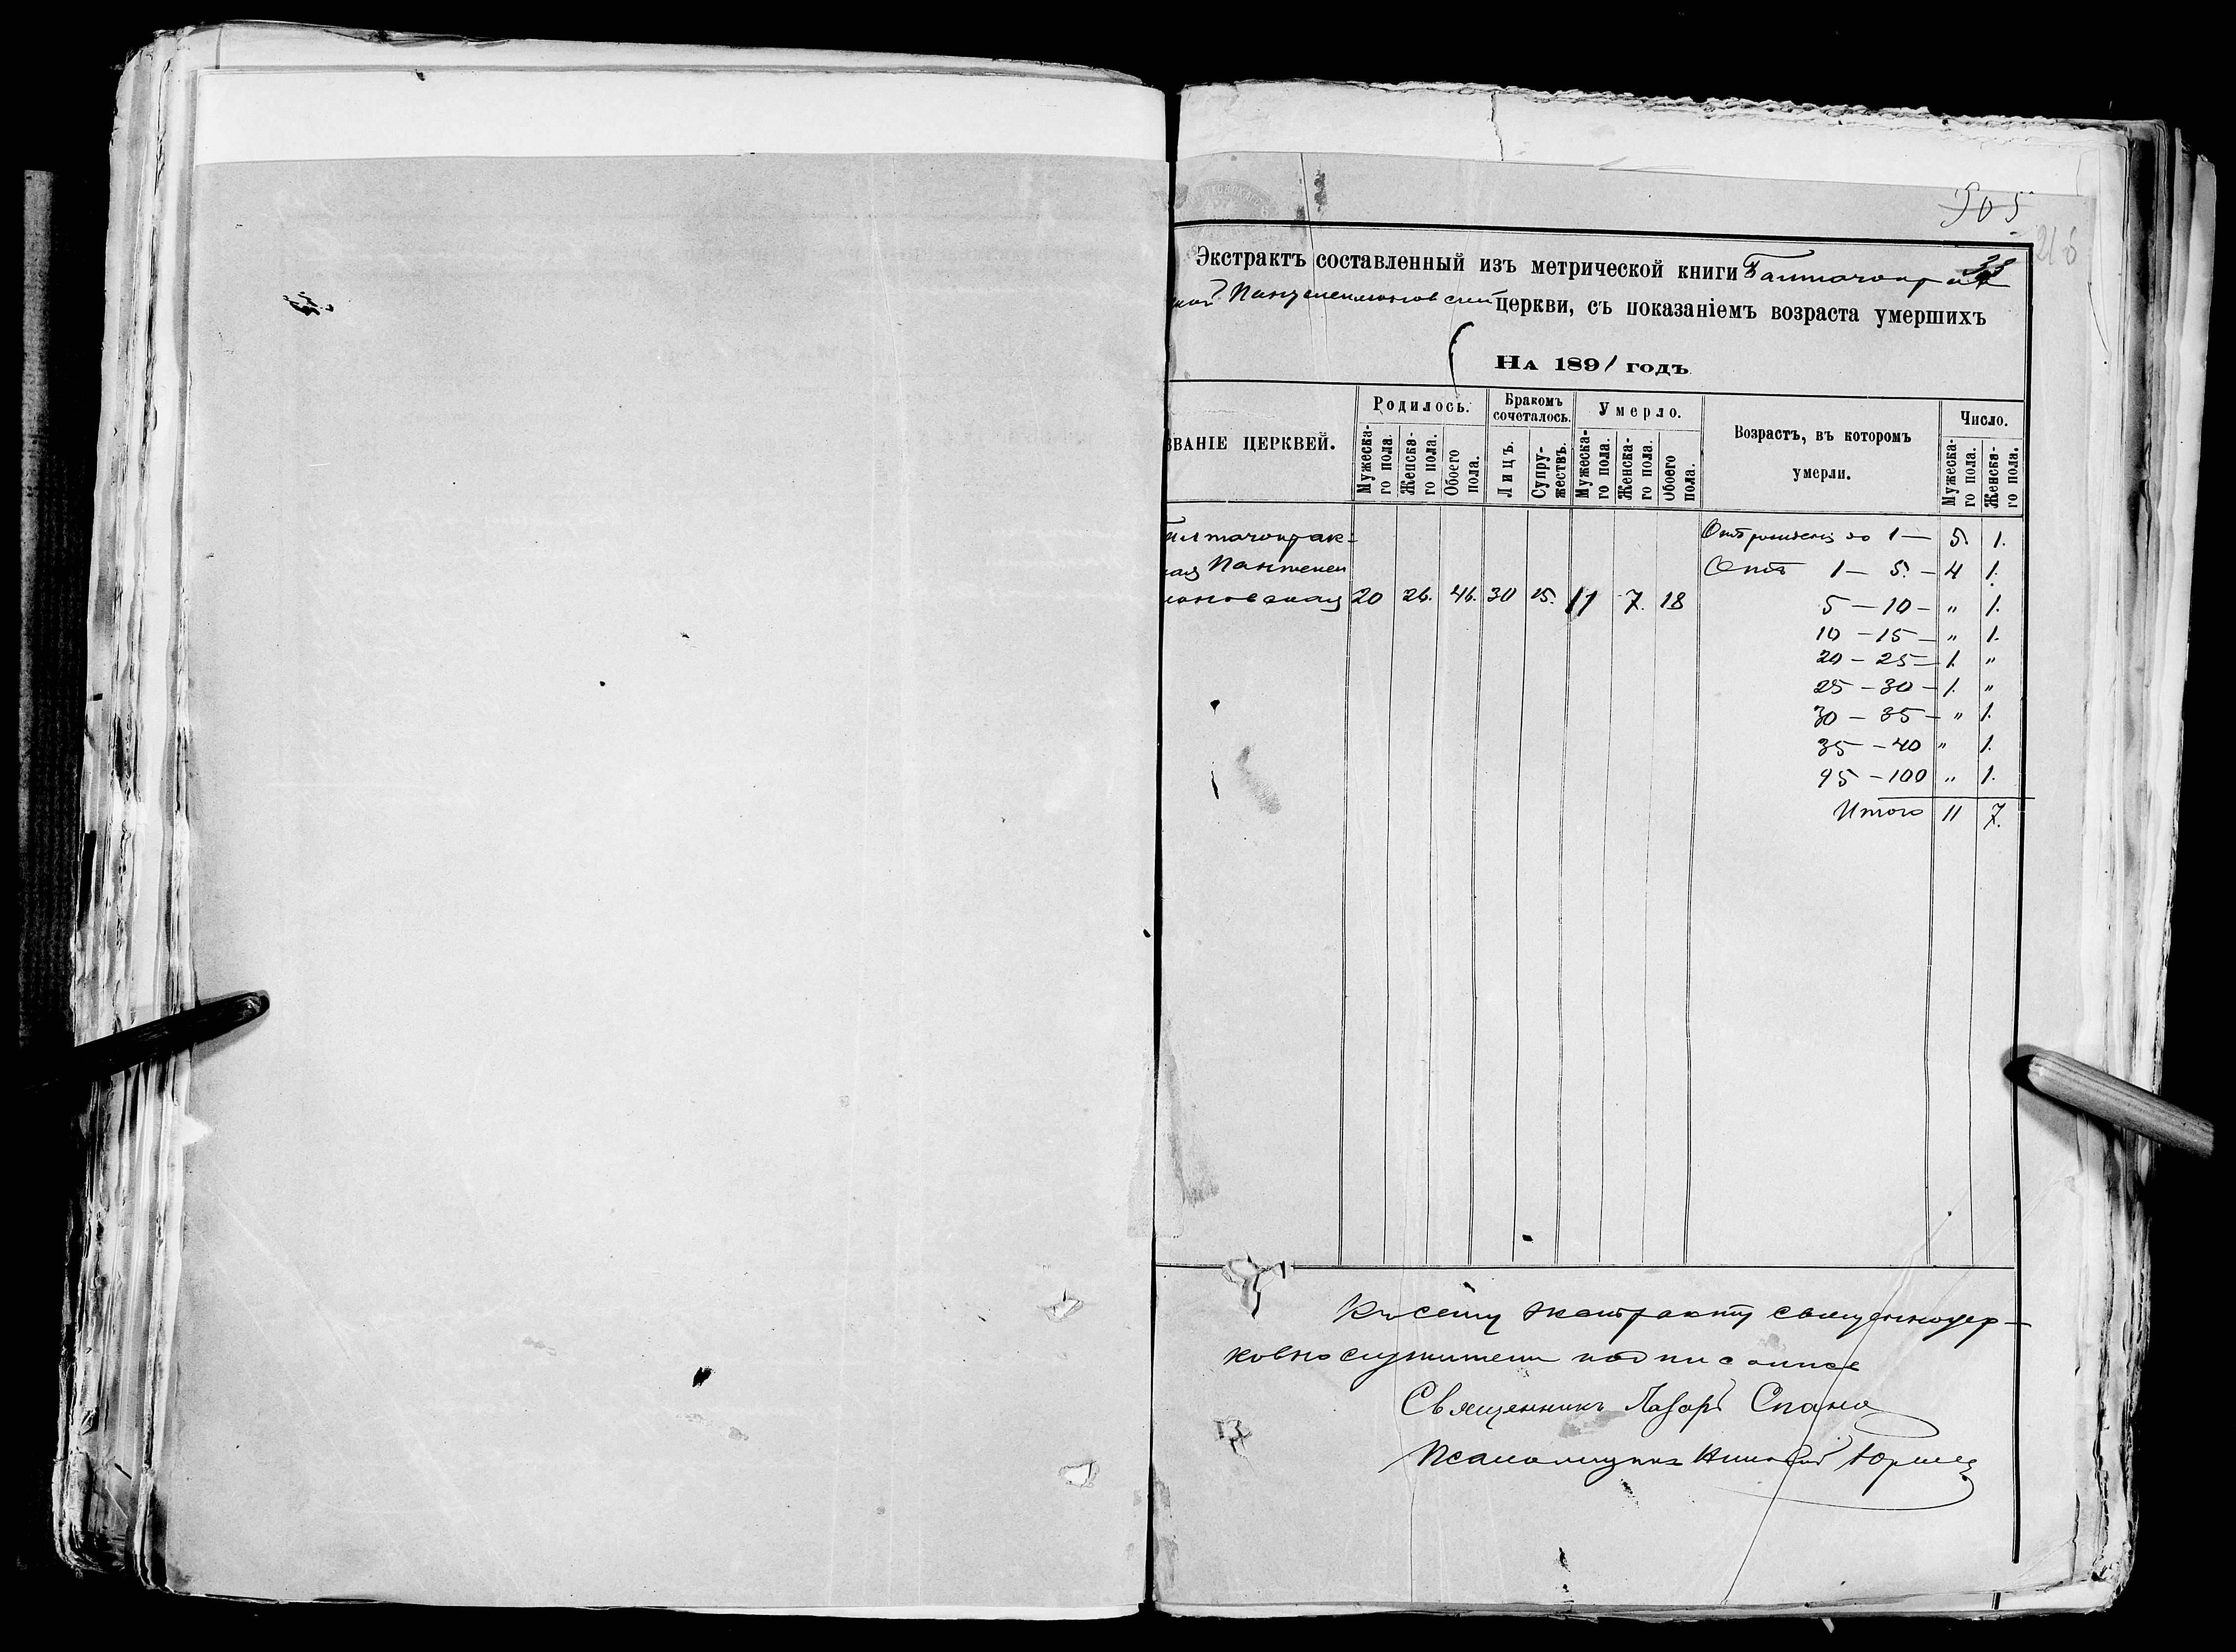 305
33
216
Экстрактъ составленный изъ метрической книги Балтачокрак
ской Пантелеимоновской церкви, съ показаніемъ возраста умершихъ
На 1891 годъ
ЗВАНІЕ ЦЕРКВЕЙ. Родилось. Бракомъ сочеталось. Умерло. Возрастъ, въ которомъ умерли. Число.
Мужеска-го пола. Женска-го пола. Обоего пола. Лицъ. Супру-жествъ. Мужеска-го пола. Женска-го пола. Обоего пола. Мужеска-го пола. Женска-го пола.
Балтачокрак-
ская Пантелеи
моновская 20 26. 46. 30 15. 11 7. 18
Отъ рожденія до 1 — 5. 1.
Отъ 1 — 5. — 4 1.
5 — 10 — „ 1.
10 — 15 — „ 1.
20 — 25 — 1. „
25 — 30 — 1. „
30 — 35 — „ 1.
35 — 40 „ 1.
95 — 100 „ 1.
Итого 11 7.
Къ сему экстракту священноцер-
ковнослужители подписались
Священникъ Лазарь Спано
Псаломщикъ